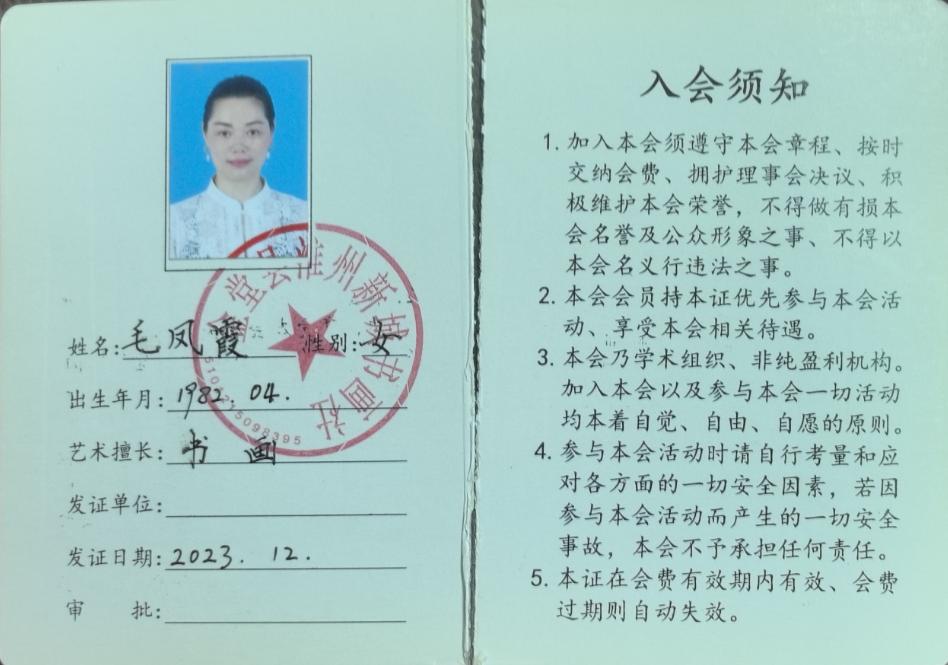 姓名:毛凤霞 性别:女
出生年月:1982.04.
艺术擅长:书画
发证单位:
发证日期:2023.12.
审 批:
堂县淮州新城书画社
入会须知
1.加入本会须遵守本会章程、按时
交纳会费、拥护理事会决议、积
极维护本会荣誉，不得做有损本
会名誉及公众形象之事、不得以
本会名义行违法之事。
2.本会会员持本证优先参与本会活
动、享受本会相关待遇。
3.本会乃学术组织、非纯盈利机构。
加入本会以及参与本会一切活动
均本着自觉、自由、自愿的原则。
4.参与本会活动时请自行考量和应
对各方面的一切安全因素，若因
参与本会活动而产生的一切安全
事故，本会不予承担任何责任。
5.本证在会费有效期内有效、会费
过期则自动失效。